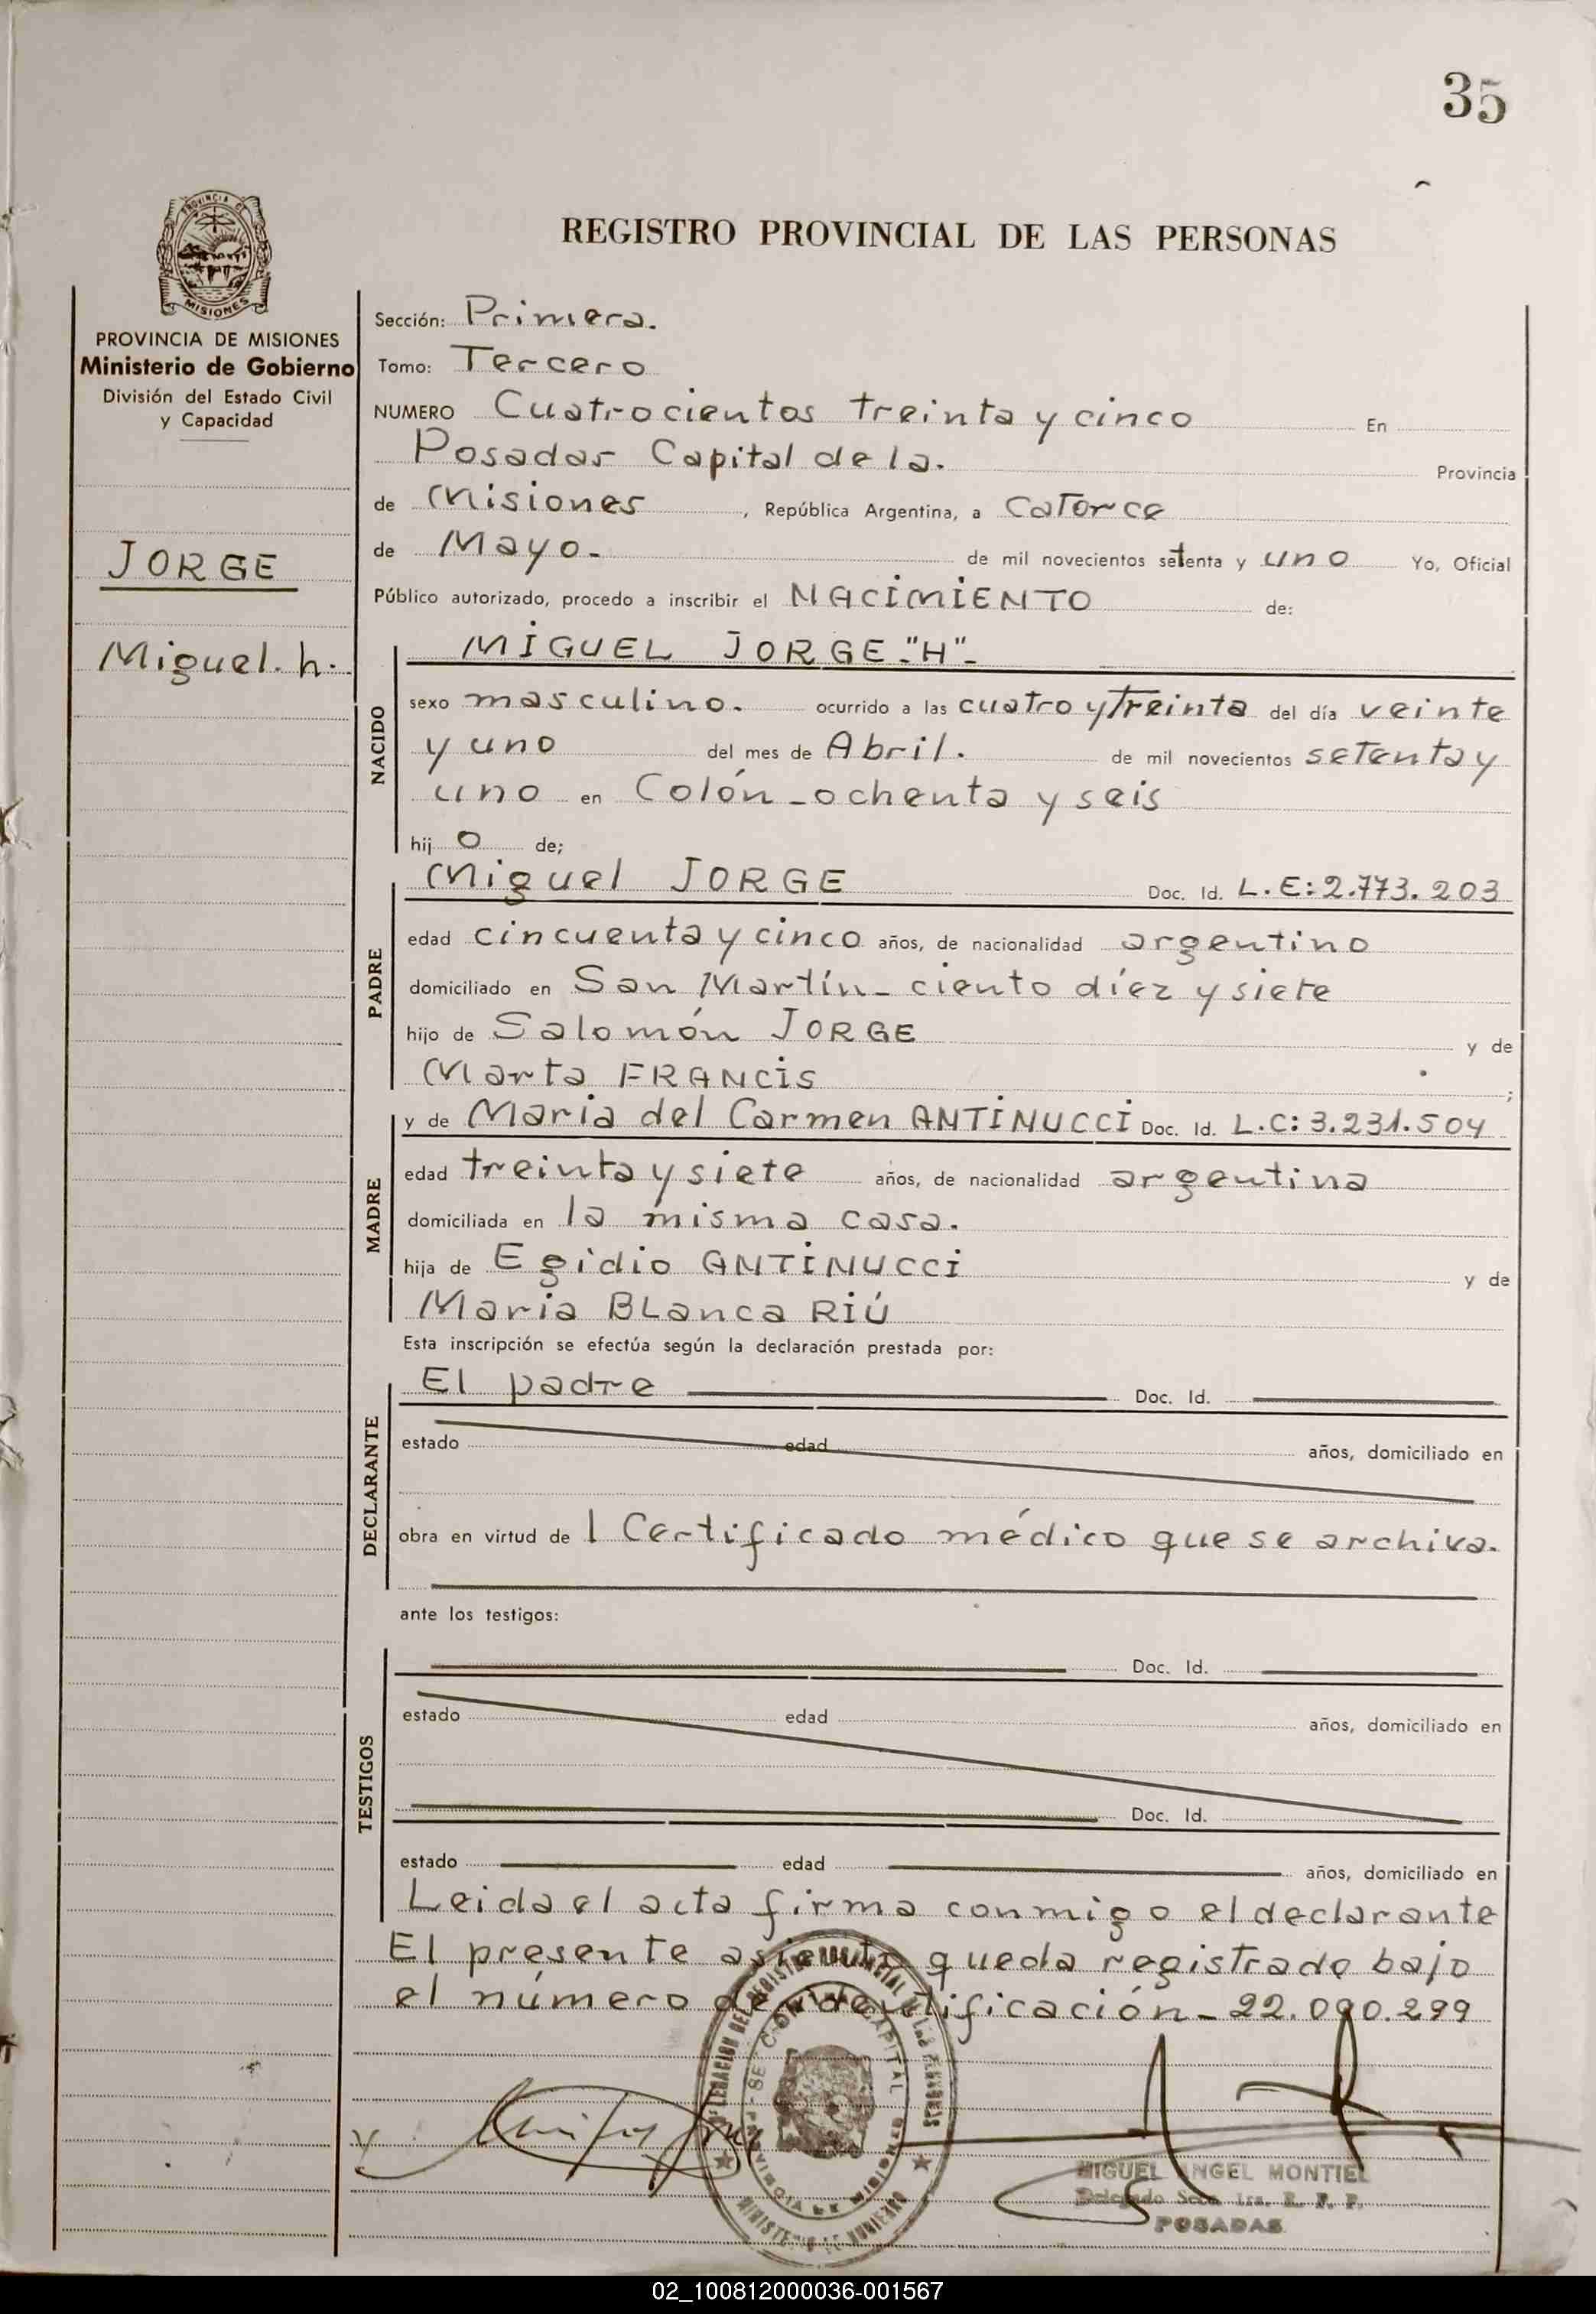 35
REGISTRO PROVINCIAL DE LAS PERSONAS
PROVINCIA DE
MISIONES
PROVINCIA DE MISIONES
Ministerio de Gobierno
División del Estado Civil
y Capacidad
JORGE
Miguel. h.
Sección: Primera.
Tomo: Tercero
NUMERO Cuatrocientos treinta y cinco En
Posadas Capital de la. Provincia
de Misiones, República Argentina, a Catorce
de Mayo. de mil novecientos setenta y uno Yo, Oficial
Público autorizado, procedo a inscribir el NACIMIENTO de:
NACIDO
MIGUEL JORGE "H"-
sexo masculino. ocurrido a las cuatro y treinta del día veinte
y uno del mes de Abril. de mil novecientos setenta y
uno en Colón - ochenta y seis
hij o de;
PADRE
Miguel JORGE Doc. Id. L.E: 2.773.203
edad cincuenta y cinco años, de nacionalidad argentino
domiciliado en San Martín - ciento díez y siete
hijo de Salomón JORGE y de
Marta FRANCIS ;
MADRE
y de Maria del Carmen ANTINUCCI Doc. Id. L.C: 3.231.504
edad treinta y siete años, de nacionalidad argentina
domiciliada en la misma casa.
hija de Egidio ANTINUCCI y de
Maria BLanca RIÚ
Esta inscripción se efectúa según la declaración prestada por:
DECLARANTE
El padre Doc. Id.
estado edad años, domiciliado en
obra en virtud de 1 Certificado médico que se archiva.
ante los testigos:
TESTIGOS
Doc. Id.
estado edad años, domiciliado en
Doc. Id.
estado edad años, domiciliado en
Leida el acta firma conmigo el declarante
El presente asiento queda registrado bajo
el número de identificación - 22.090.299
MIGUEL ANGEL MONTIEL
Delegado Secc. 1ra. R. P. P.
POSADAS
02_100812000036-001567